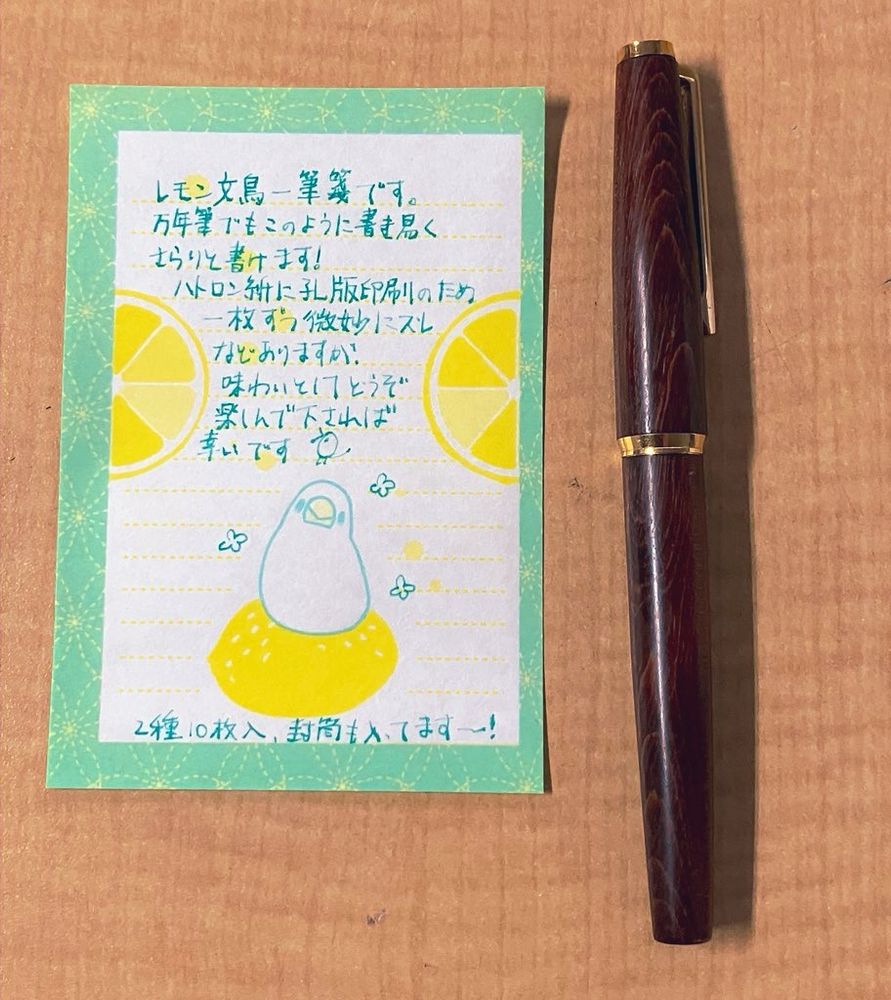 レモン文鳥一筆箋です。
万年筆でもこのように書き易く
さらりと書けます!
ハトロン紙に孔版印刷のため
一枚ずつ微妙にズレ
などありますが、
味わいとしてどうぞ
楽しんで下されば
幸いです
2種10枚入、封筒も入ってます〜!